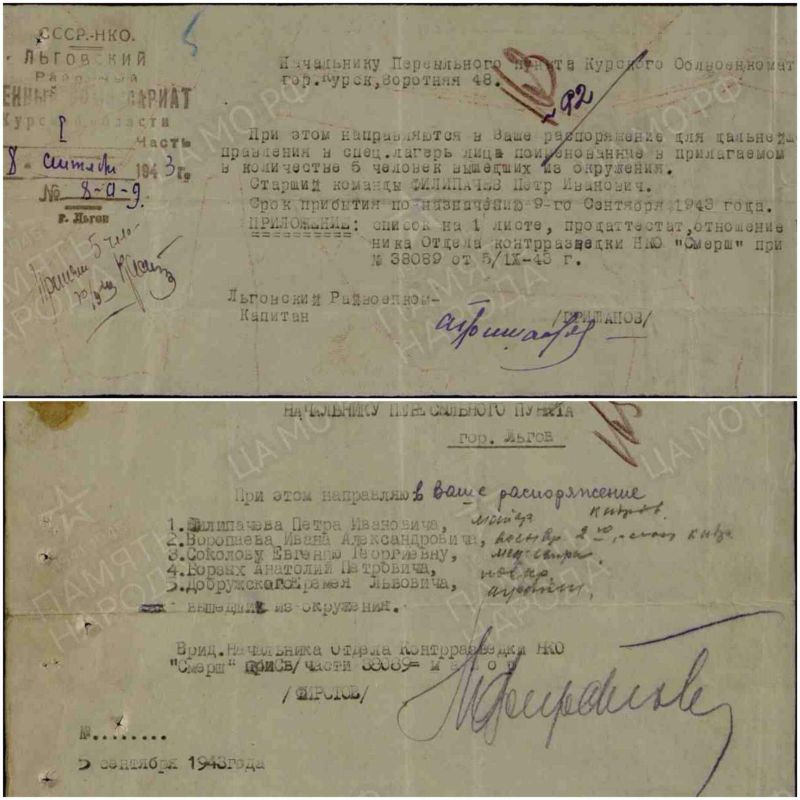 СССР.-НКО.
ЛЬГОВСКИЙ
Районный
ЕННЫЙ КОМИССАРИАТ
Курской области
I
Часть
8 - сентября 1943 г.
№ 8-0-9.
г. Льгов
5
Начальнику Пересыльного пункта Курского Облвоенкомат
гор.Курск, Воротняя 48.
№ 92
При этом направляются в Ваше распоряжение для дальней
правления в спец.лагерь лица поименованные в прилагаемом
в количестве 5 человек вышедших из окружения.
Старший команды ФИЛИПАЧЕВ Петр Иванович.
Срок прибытия по назначению 9-го Сентября 1943 года.
ПРИЛОЖЕНИЕ: список на 1 листе, продаттестат, отношение
ника Отдела контрразведки НКО "Смерш" при
№ 38089 от 5/IX-43 г.
Льговский Райвоенком-
Капитан /ГРИШАНОВ/
НАЧАЛЬНИКУ ПЕРЕСЫЛЬНОГО ПУНКТА
гор. Льгов
При этом направляю в Ваше распоряжение
1.Филипачева Петра Ивановича,
2.Воропаева Ивана Александровича,
3.Соколову Евгению Георгиевну,
4.Борзых Анатолий Петровича,
5.Добружского Еремея Львовича,
вышедших из окружения.
Врид.Начальника Отдела Контрразведки НКО
"Смерш" при части 38089= майор
/ФИРСТОВ/
№........
5 сентября 1943года
ПАМЯТЬ НАРОДА
ЦА МО РФ